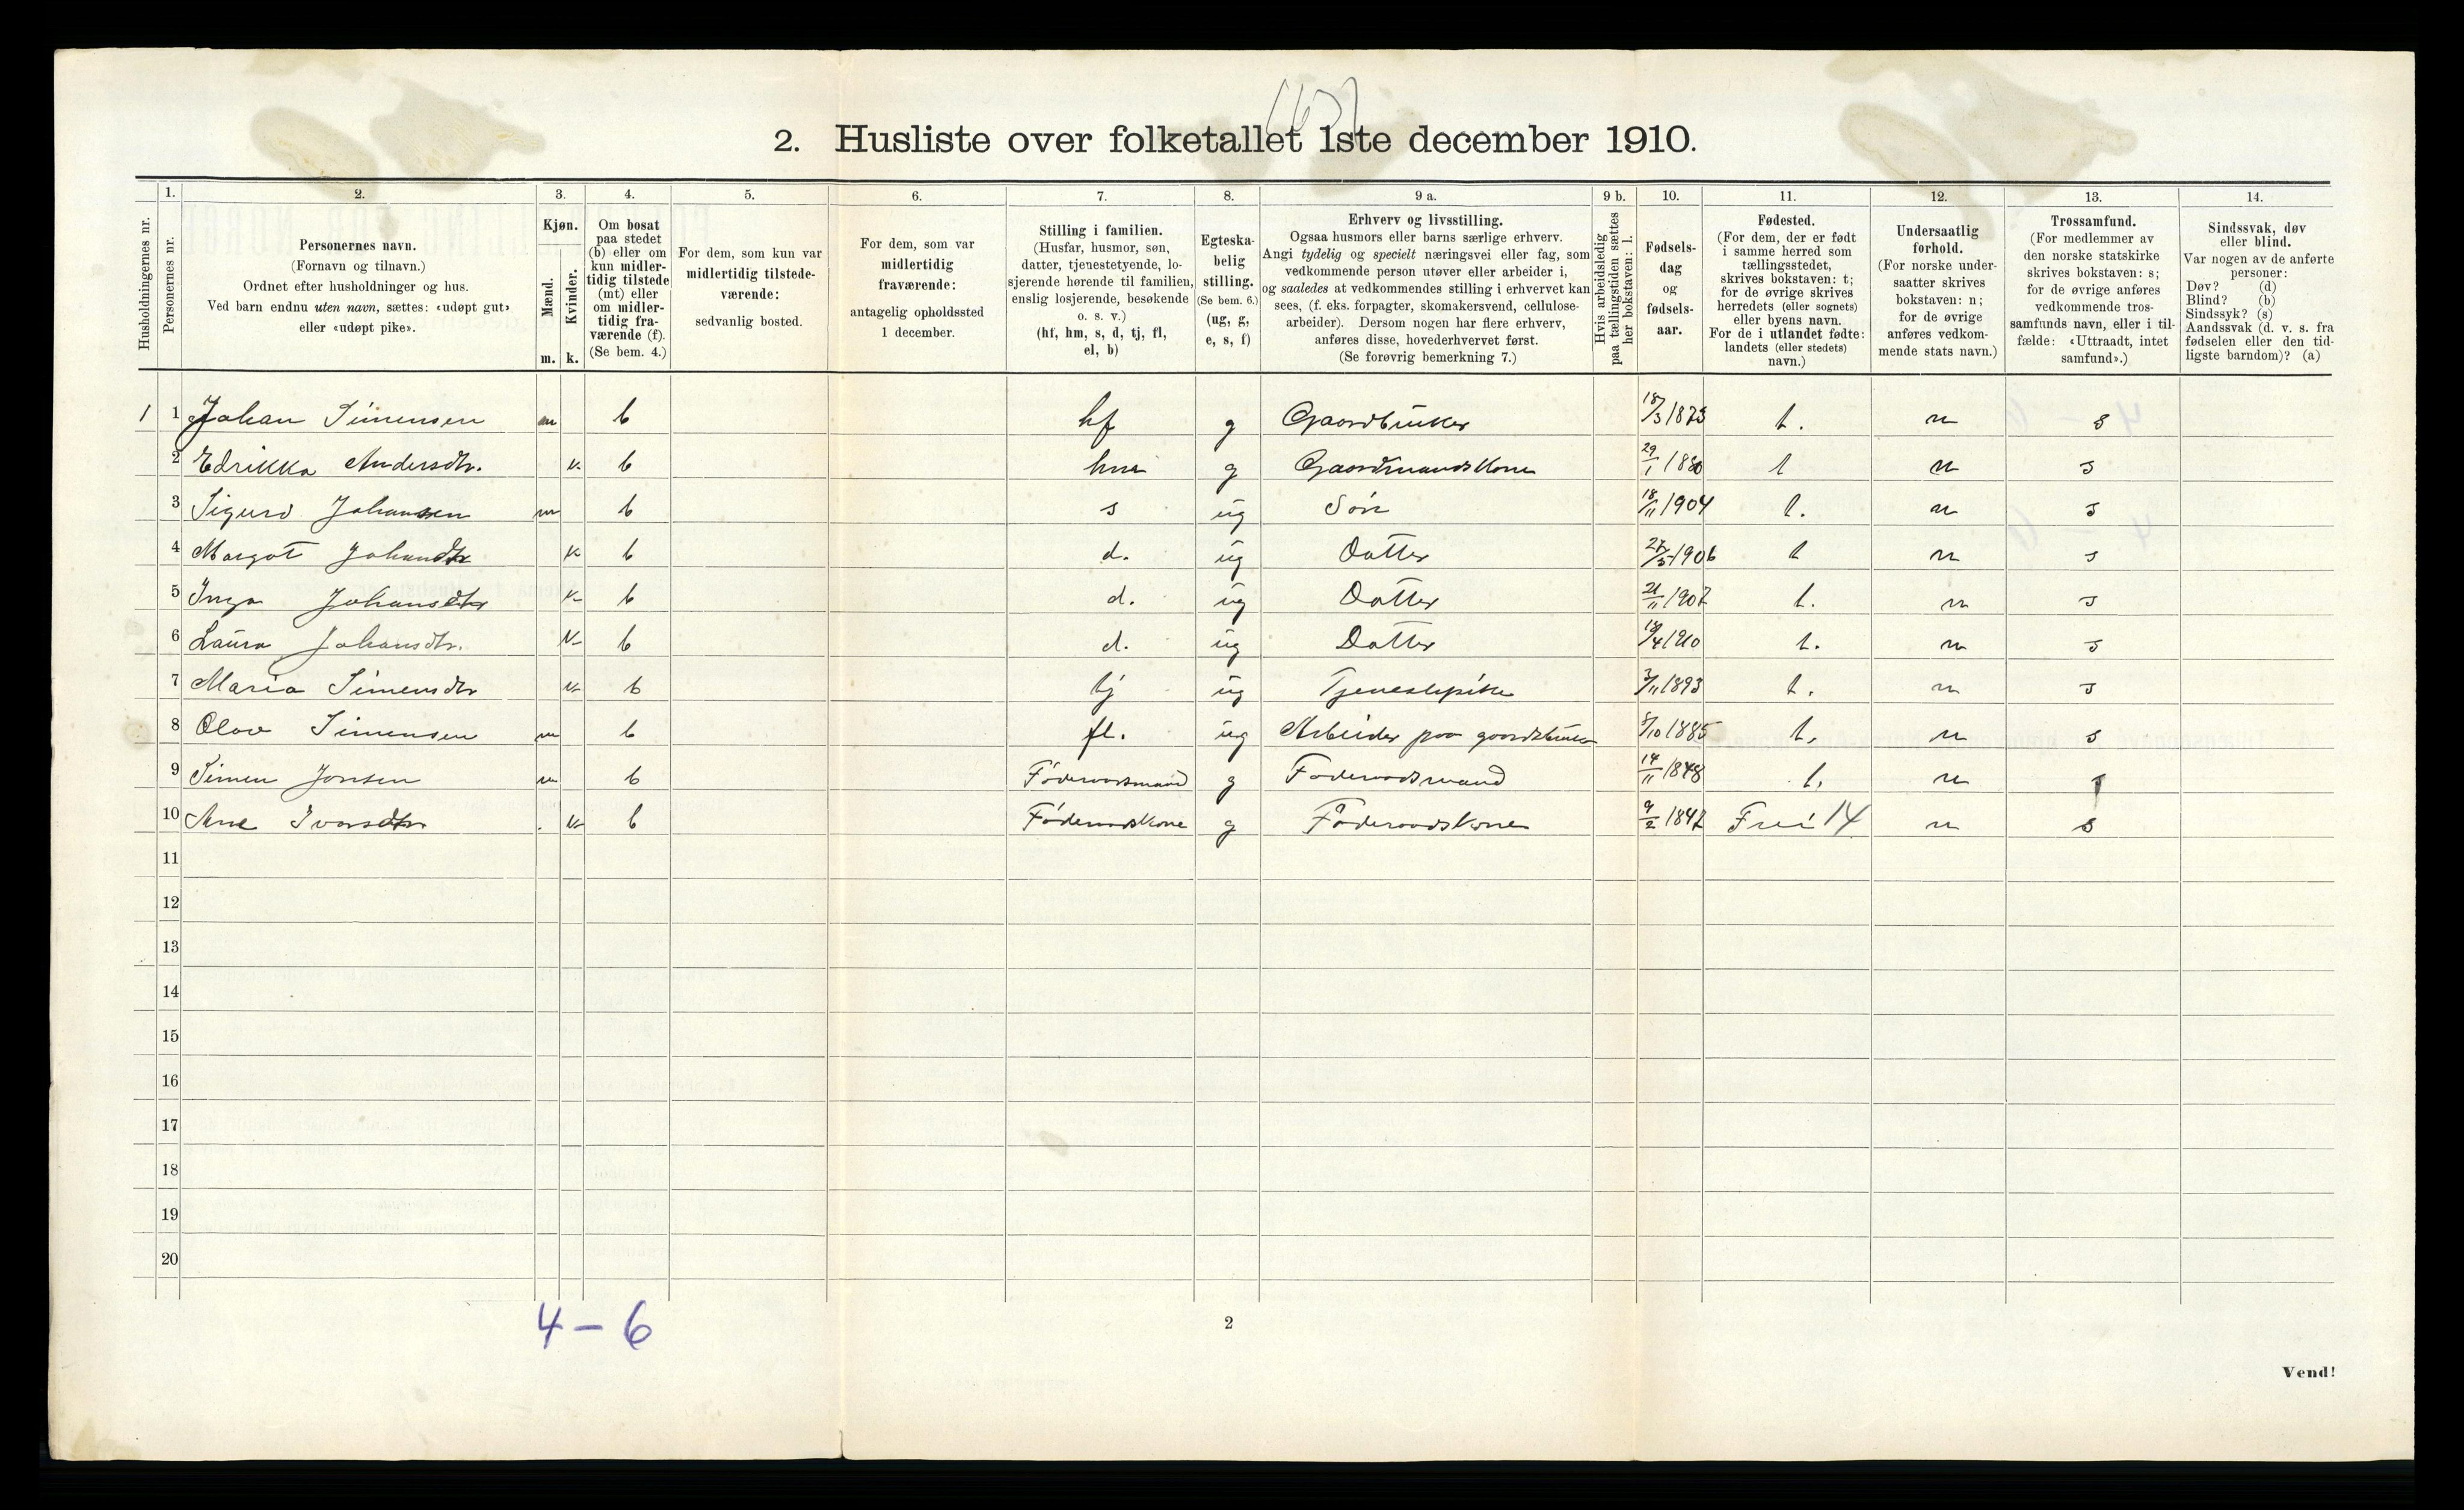 2. Husliste over folketallet 1ste december 1910.
1. 2. 3. 4. 5. 6. 7. 8. 9 a. 9 b. 10. 11. 12. 13. 14.
Husholdningernes nr.
Personernes nr.
Personernes navn.
(Fornavn og tilnavn.)
Ordnet efter husholdninger og hus.
Ved barn endnu uten navn, sættes: «udøpt gut»
eller «udøpt pike».
Kjøn.
Mænd.
Kvinder.
m. k.
Om bosat
paa stedet
(b) eller om
kun midler-
tidig tilstede
(mt) eller
om midler-
tidig fra-
værende (f).
(Se bem. 4.)
For dem, som kun var
midlertidig tilstede-
værende:
sedvanlig bosted.
For dem, som var
midlertidig
fraværende:
antagelig opholdssted
1 december.
Stilling i familien.
(Husfar, husmor, søn,
datter, tjenestetyende, lo-
sjerende hørende til familien,
enslig losjerende, besøkende
o. s. v.)
(hf, hm, s, d, tj, fl,
el, b)
Egteska-
belig
stilling.
(Se bem. 6.)
(ug, g,
e, s, f)
Erhverv og livsstilling.
Ogsaa husmors eller barns særlige erhverv.
Angi tydelig og specielt næringsvei eller fag, som
vedkommende person utøver eller arbeider i,
og saaledes at vedkommendes stilling i erhvervet kan
sees, (f. eks. forpagter, skomakersvend, cellulose-
arbeider). Dersom nogen har flere erhverv,
anføres disse, hovederhvervet først.
(Se forøvrig bemerkning 7.)
Hvis arbeidsledig
paa tællingstiden sættes
her bokstaven: l.
Fødsels-
dag
og
fødsels-
aar.
Fødested.
(For dem, der er født
i samme herred som
tællingsstedet,
skrives bokstaven: t;
for de øvrige skrives
herredets (eller sognets)
eller byens navn.
For de i utlandet fødte:
landets (eller stedets)
navn.)
Undersaatlig
forhold.
(For norske under-
saatter skrives
bokstaven: n;
for de øvrige
anføres vedkom-
mende stats navn.)
Trossamfund.
(For medlemmer av
den norske statskirke
skrives bokstaven: s;
for de øvrige anføres
vedkommende tros-
samfunds navn, eller i til-
fælde: «Uttraadt, intet
samfund».)
Sindssvak, døv
eller blind.
Var nogen av de anførte
personer:
Døv? (d)
Blind? (b)
Sindssyk? (s)
Aandssvak (d. v. s. fra
fødselen eller den tid-
ligste barndom)? (a)
1 1 Johan Simensen m b hf g Gaardbruker 18/3 1873 t. n s
2 Edrikka Andersdtr. k b hm g Gaardmandskone 29/1 1880 t n s
3 Sigurd Johansen m b s ug Søn 18/11 1904 t. n s
4 Margot Johansdtr k b d. ug Datter 27/5 1906 t n s
5 Inga Johansdtr k b d. ug Datter 21/11 1907 t. n s
6 Laura Johansdtr. k b d. ug Datter 18/4 1910 t. n s
7 Maria Simensdtr k b tj ug Tjenestepike 3/11 1893 t. n s
8 Olav Simensen m b fl. ug Arbeider paa gaardsbruk 5/10 1885 t. n s
9 Simen Jonsen m b Føderaadsmand g Føderaadsmand 14/11 1848 t. n s
10 Ane Ivarsdtr k b Føderaadskone g Føderaadskone 9/2 1847 Frei 14 n s
11
12
13
14
15
16
17
18
19
20
4 - 6
2
Vend!